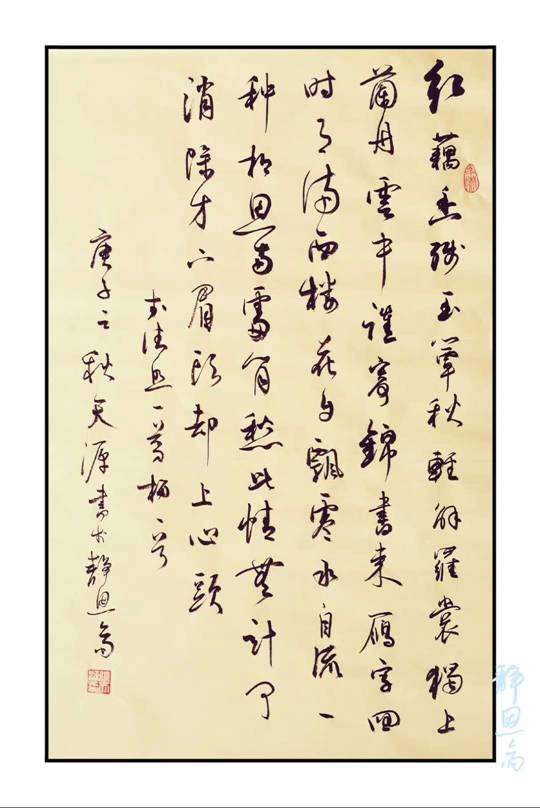 红藕香残玉簟秋輕解羅裳獨上
蘭舟雲中誰寄錦書來雁字回
时月满西楼花自飄零水自流一
种相思两處閒愁此情無計可
消除才下眉頭却上心頭
李清照一剪梅
庚子之秋天源書於静思斋
静思斋